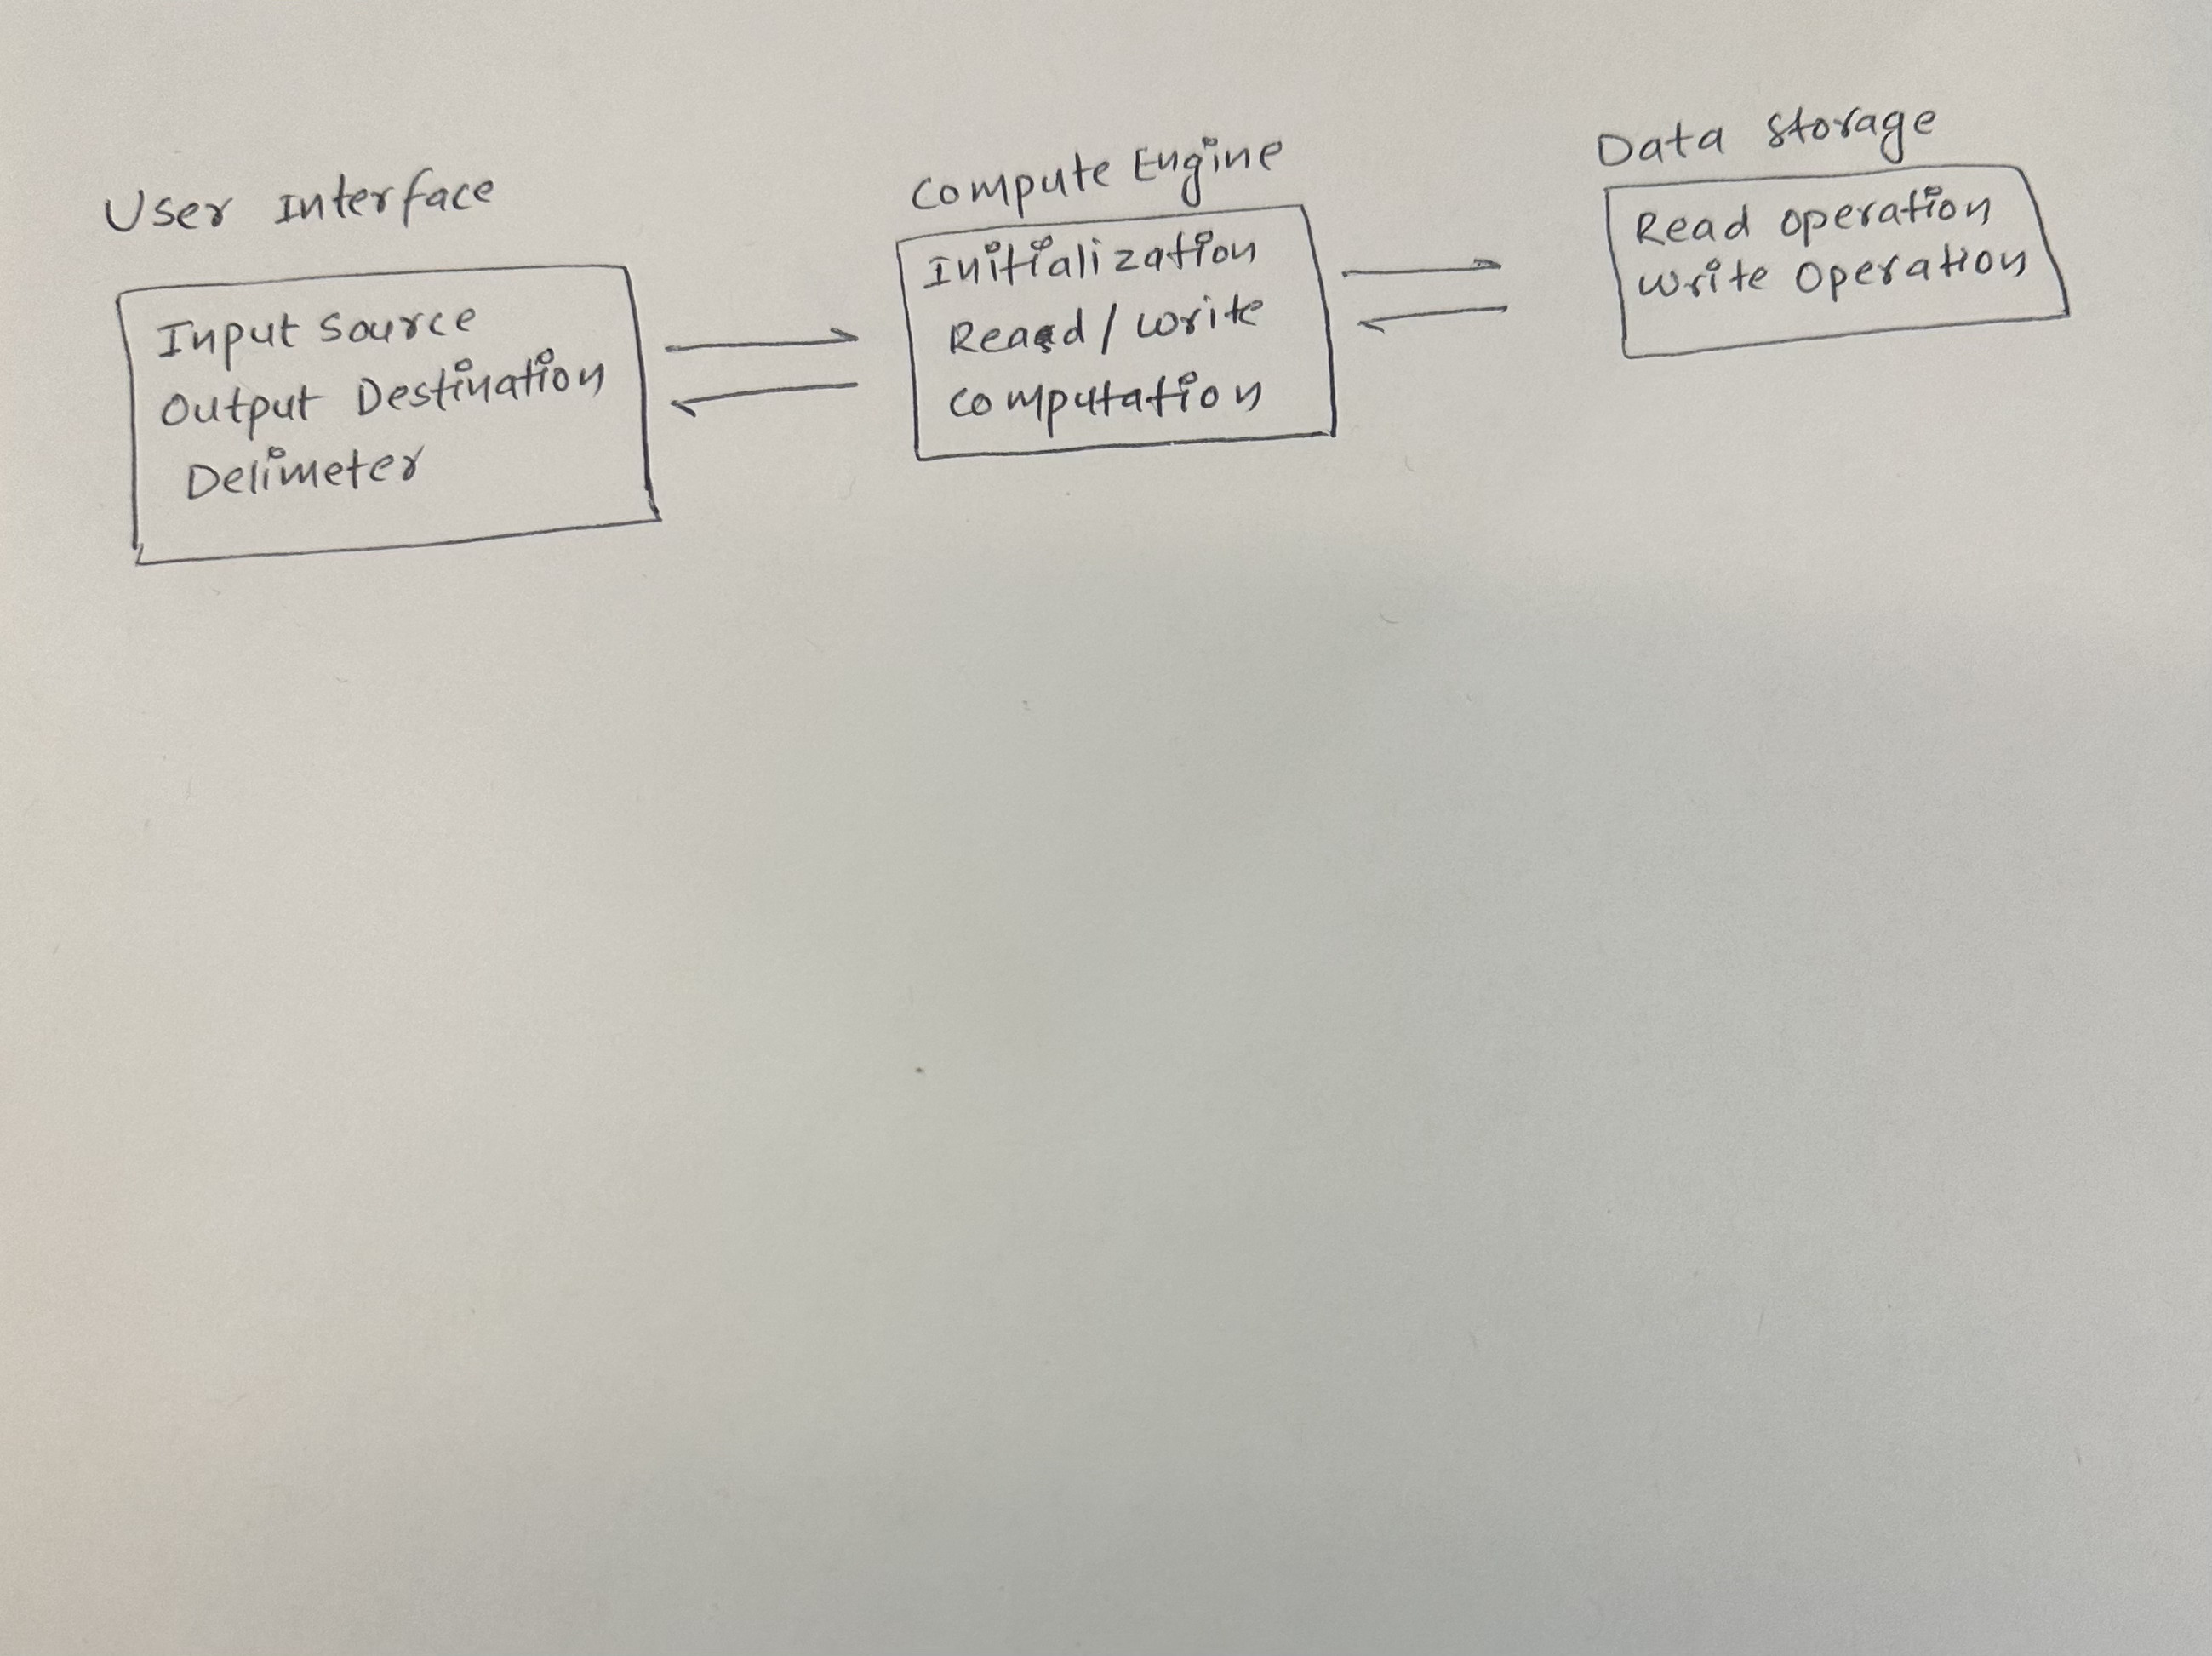 User Interface
Input Source
Output Destination
Delimeter
Compute Engine
Initialization
Read / Write
Computation
Data Storage
Read Operation
Write Operation